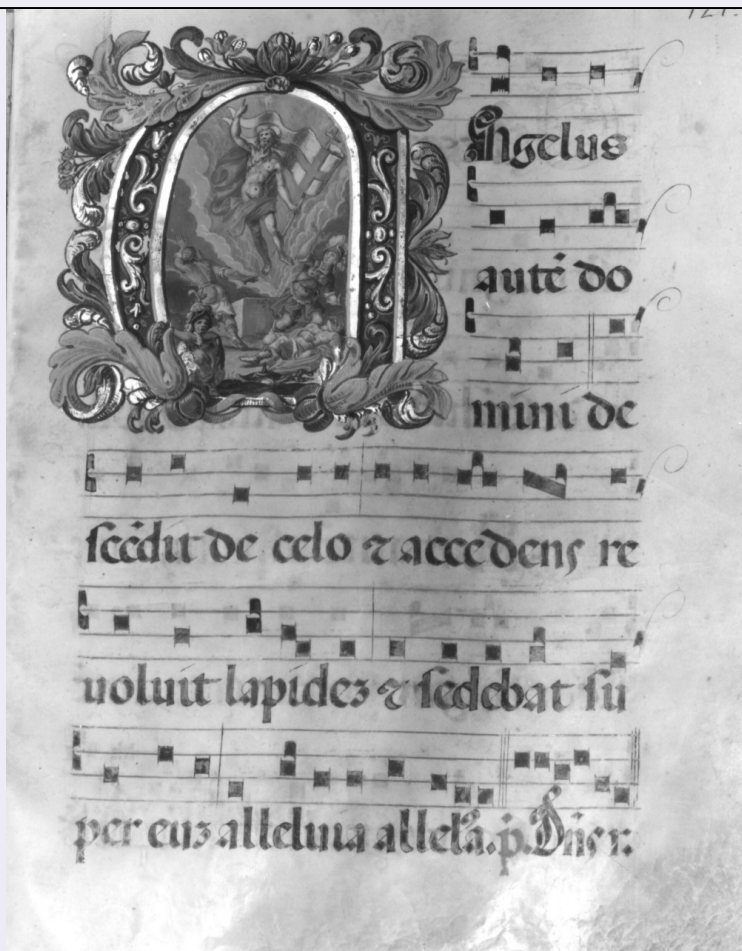 Angelus
autē do
mini de
scēdit de celo ⁊ accedens re
uoluit lapidez ⁊ sedebat su
per euz alleluia allelā. p̄. Dn̄e r.